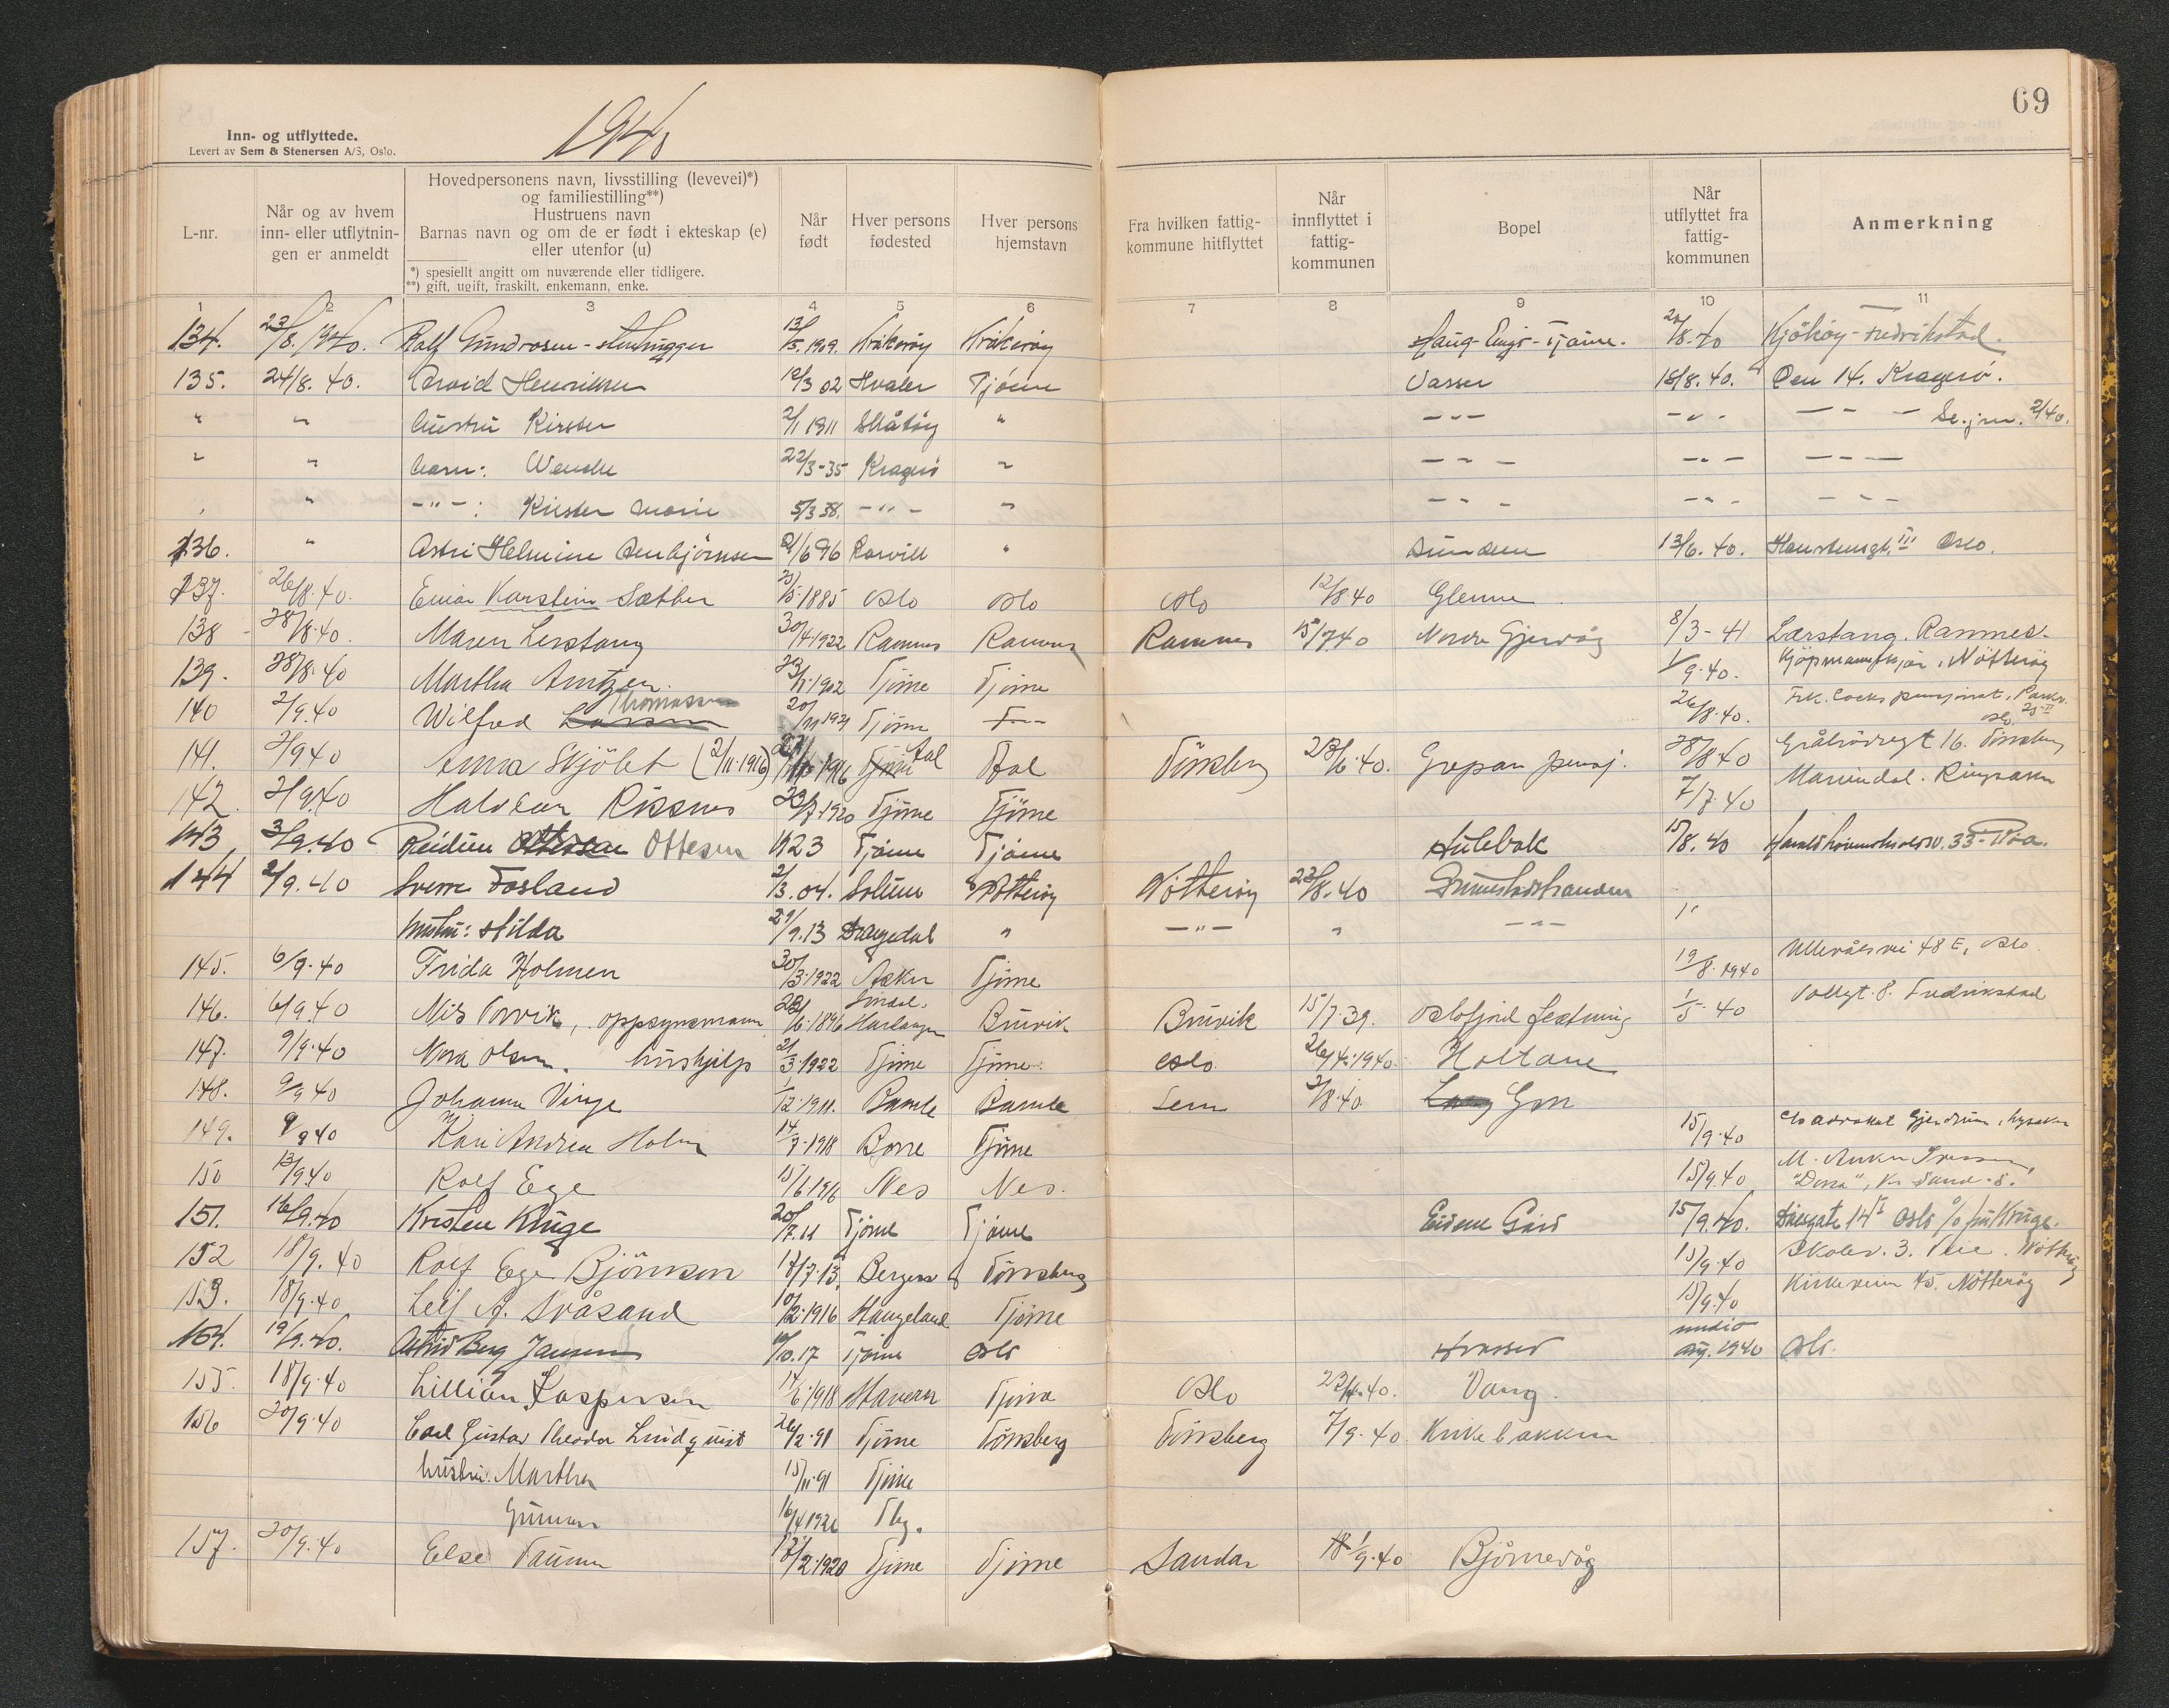 69
Inn- og utflyttede.
Levert av Sem & Stenersen A/S, Oslo.
1940
L-nr.
Når og av hvem inn- eller utflytnin-gen er anmeldt
Hovedpersonens navn, livsstilling (levevei)*) og familiestilling**)
Hustruens navn
Barnas navn og om de er født i ekteskap (e) eller utenfor (u)
*) spesiellt angitt om nuværende eller tidligere.
**) gift, ugift, fraskilt, enkemann, enke.
Når født
Hver persons fødested
Hver persons hjemstavn
Fra hvilken fattig-kommune hitflyttet
Når innflyttet i fattig-kommunen
Bopel
Når utflyttet fra fattig-kommunen
Anmerkning
1 2 3 4 5 6 7 8 9 10 11
134. 23/8.1940. Rolf Gundrosen - stenhugger 13/5.1909. Kråkerøy Kråkerøy Haug-Engø-Tjøme. 20/8.40 Kjökøy-Fredrikstad.
135. 24/8.40. Arvid Henriksen 10/3 02 Hvaler Tjöme Vasser 15/8.40. Øen 14. Kragerø.
" " hustru Kirsten 2/1 1911 Skåtöy " - " - - " - - " - Se jnr. 2/40.
" " barn: Wenche 22/3-35 Kragerö " - " - - " - - " -
" - " - : Kirsten Marie 5/3 38. - " - " - " - - " - - " -
136. " Astri Helmine Senbjörnsen 21/6 96 " Sunden 13/6.40. III Oslo.
137. 26/8.40. Einar Karstein Sæther /5.1885 Oslo Oslo Oslo 12/8 40 Glenne
138 28/8.40. Maren Lerstang 30/4.1922 Ramnes Ramnes Ramnes 15/7 40 Nordre Gjervåg 8/3-41 Lærstang. Ramnes.
139. 28/8.40 Martha Arntzen 23/ .1902 Tjöme Tjöme 1/9.40. Kjöpmannskjær, Nötteröy
140 2/9.40 Wilfred Larsen Thomassen 20/11 1921 Tjöme T-- 26/8.40. Frk. Cocks pensjonat, Parkv. 25 II Oslo.
141. 2/9 40 Anna Skjölet (2/11.1916) 1916 Tjöme Aal Aal Tönsberg 23/6.40. Grepan pensj. 28/8 40 Gråbrödregt 16. Tönsberg
142. 2/9.40 Halvdan Rissnes 23/7.1920 Tjöme Tjöme 7/7.40 Ringsaker
143 3/9.40 Reidun Ottesen Ottesen 23 Tjöme Tjöme Hulebak 15/8.40 33
144 2/9.40 Sverre Fosland 2/3.04. Solum Nötteröy Nötteröy 23/8.40 Grimestadstranden
hustru: Hilda 29/9.13 Drangedal " - " - " - " - "
145. 6/9.40 Frida Holmen 30/3.1922 Asker Tjöme 19/8.1940 Ullevålsvei 48 E, Oslo.
146. 6/9.40 Nils Porvik, oppsynsmann 23/6.1896 Bruvik Bruvik 15/7.39. Oslofjord festning 1/5-40 Vollgt. 8. Fredrikstad
147. 9/9.40 Nora Olsen. hushjelp 21/3.1922 Tjöme Tjöme. Oslo 26/4.1940 Holtane
148. 9/9 40 Johanne Vinge 1/12.1911. Bamle Bamle Sem 2/8.40 Gon
149. 9/9 40 Kari Andrea Holm 14/9.1918 Borre Tjöme 15/9.40 c/o advokat Gjerdrum, Lysaker
150 13/9.40 Rolf Ege 15/6.1916 Nes Nes. 15/9.40 M. Anker "Dona", Kr. sand. S.
151. 16/9.40 Kristen Kruge 20/7.11 Tjöme Tjöme Eidene Gård 15/9.40. 14 I Oslo c/o fru Kruge.
152 18/9.40 Rolf Ege Björnson 18/7.13. Bergen Tönsberg 15/9.40 Skolev. 3. Teie. Nötteröy
153. 18/9.40 Leif A. Svåsand 10/2.1916 Haugeland Tjöme 15/9.40 Kirkeveien 45. Nötteröy
154. 19/9.40. Astrid Berg Jansen /10.17 Tjöme Oslo Hvasser medio aug. 1940 Oslo.
155. 18/9.40 Lillian Kaspersen 14/6.1918 Stavern Tjöme Oslo 23/4.40. Vang.
156 20/9.40 Carl Gustav Theodor Lindquist 26/2.91 Tjöme Tönsberg Tönsberg 7/9.40 Kirkebakken
hustru: Martha 15/11.91 Tjöme
Gunnar 16/4 1926 Tbg.
157. 20/9.40 Else 18/2.1920 Tjöme Tjöme Sandar 1/9.40 Björnevåg